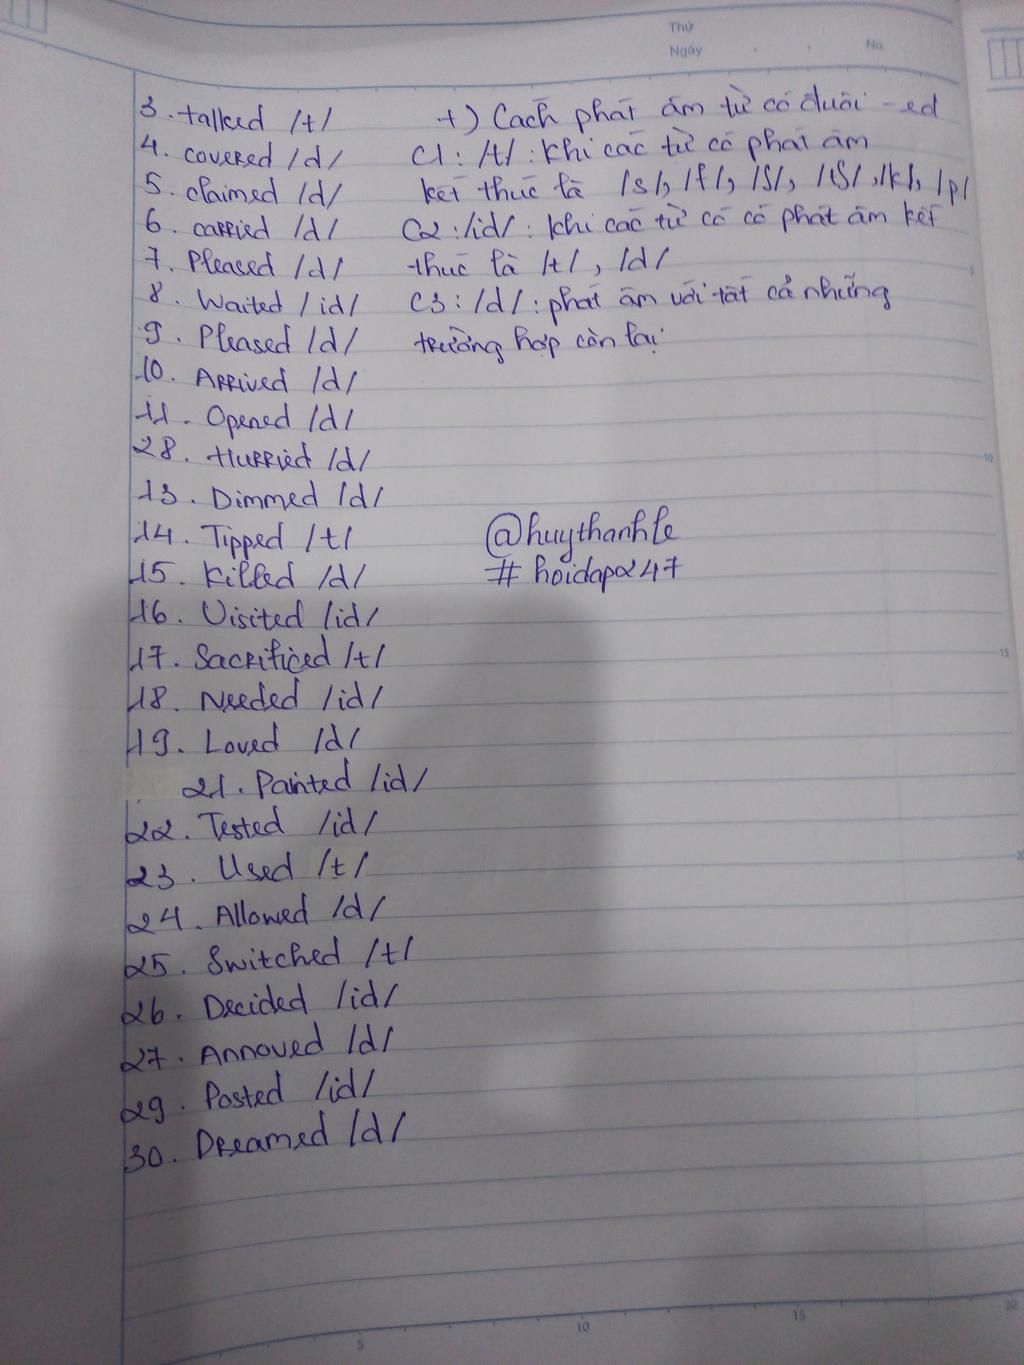 Thứ
Ngày . . No.
3. talked /t/ +) Cách phát âm từ có đuôi -ed
4. covered /d/ C1: /t/: khi các từ có phát âm
5. claimed /d/ kết thúc là /s/, /f/, /ʃ/, /tʃ/, /k/, /p/
6. carried /d/ C2: /id/: khi các từ có có phát âm kết
7. Pleased /d/ thúc là /t/, /d/
8. Waited /id/ C3: /d/: phát âm với tất cả những
9. Pleased /d/ trường hợp còn lại
10. Arrived /d/
11. Opened /d/
28. Hurried /d/
13. Dimmed /d/
14. Tipped /t/ @huythanhle
15. Killed /d/ # hoidap247
16. Visited /id/
17. Sacrificed /t/
18. Needed /id/
19. Loved /d/
21. Painted /id/
22. Tested /id/
23. Used /t/
24. Allowed /d/
25. Switched /t/
26. Decided /id/
27. Annoved /d/
29. Posted /id/
30. Dreamed /d/
5 10 15 20